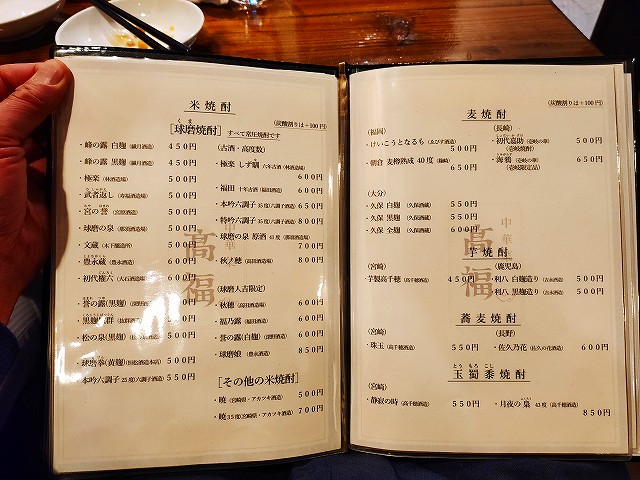 米焼酎
(炭酸割りは+100円)
[球磨焼酎] すべて常圧焼酎です
くま
・峰の露 白麹(繊月酒造) 450円
・峰の露 黒麹(繊月酒造) 450円
・極楽(林酒造場) 500円
・武者返し(寿福酒造場) 500円
・宮の誉(宮原酒造) 500円
・球磨の泉(那須酒造場) 500円
・文蔵(木下醸造所) 500円
・豊永蔵(豊永酒造) 600円
・初代権六(大石酒造場) 600円
0円
0円
・松の泉(黒麹) 0円
・球磨拳(黄麹)(恒松酒造本店) 550円
・本吟六調子 25度(六調子酒造) 550円
(古酒・高度数)
・極楽 しず 六年古酒(林酒造場)
600円
・福田 十年古酒(福田酒造) 600円
・本吟六調子 35度(六調子酒造) 650円
・特吟六調子 35度(六調子酒造) 800円
・球磨の泉 原酒 43度(那須酒造場)
700円
・秋ノ穂(高田酒造場) 800円
(球磨人吉限定)
・秋穂(高田酒造場) 600円
・福乃露(福田酒造) 600円
・誉の露(白麹)(深野酒造) 600円
・球磨娘(豊永酒造) 850円
[その他の米焼酎]
・暁(宮崎県・アカツキ酒造) 500円
・暁35度(宮崎県・アカツキ酒造) 700円
中華
高福
麦焼酎
(炭酸割りは+100円)
(福岡)
・けいこうとなるも(ゑびす酒造) 500円
・朝倉 麦樽熟成 40度(篠崎)
650円
(長崎)
・初代嘉助(壱岐の華) 500円
(壱岐焼酎)
・海鴉(壱岐の華) 650円
(壱岐限定品)
(大分)
・久保 白麹(久保酒蔵) 550円
・久保 黒麹(久保酒蔵) 550円
・久保 全麹(久保酒蔵) 600円
中華
高福
芋焼酎
(宮崎)
・芋製高千穂(高千穂酒造) 450円
(鹿児島)
・利八 白麹造り(吉永酒造) 500円
・利八 黒麹造り(吉永酒造) 500円
蕎麦焼酎
(宮崎)
・珠玉(高千穂酒造) 550円
(長野)
・佐久乃花(佐久の花酒造) 600円
とう もろ こし
玉蜀黍焼酎
(宮崎)
・静寂の時(高千穂酒造) 550円
・月夜の梟 43度(高千穂酒造)
850円